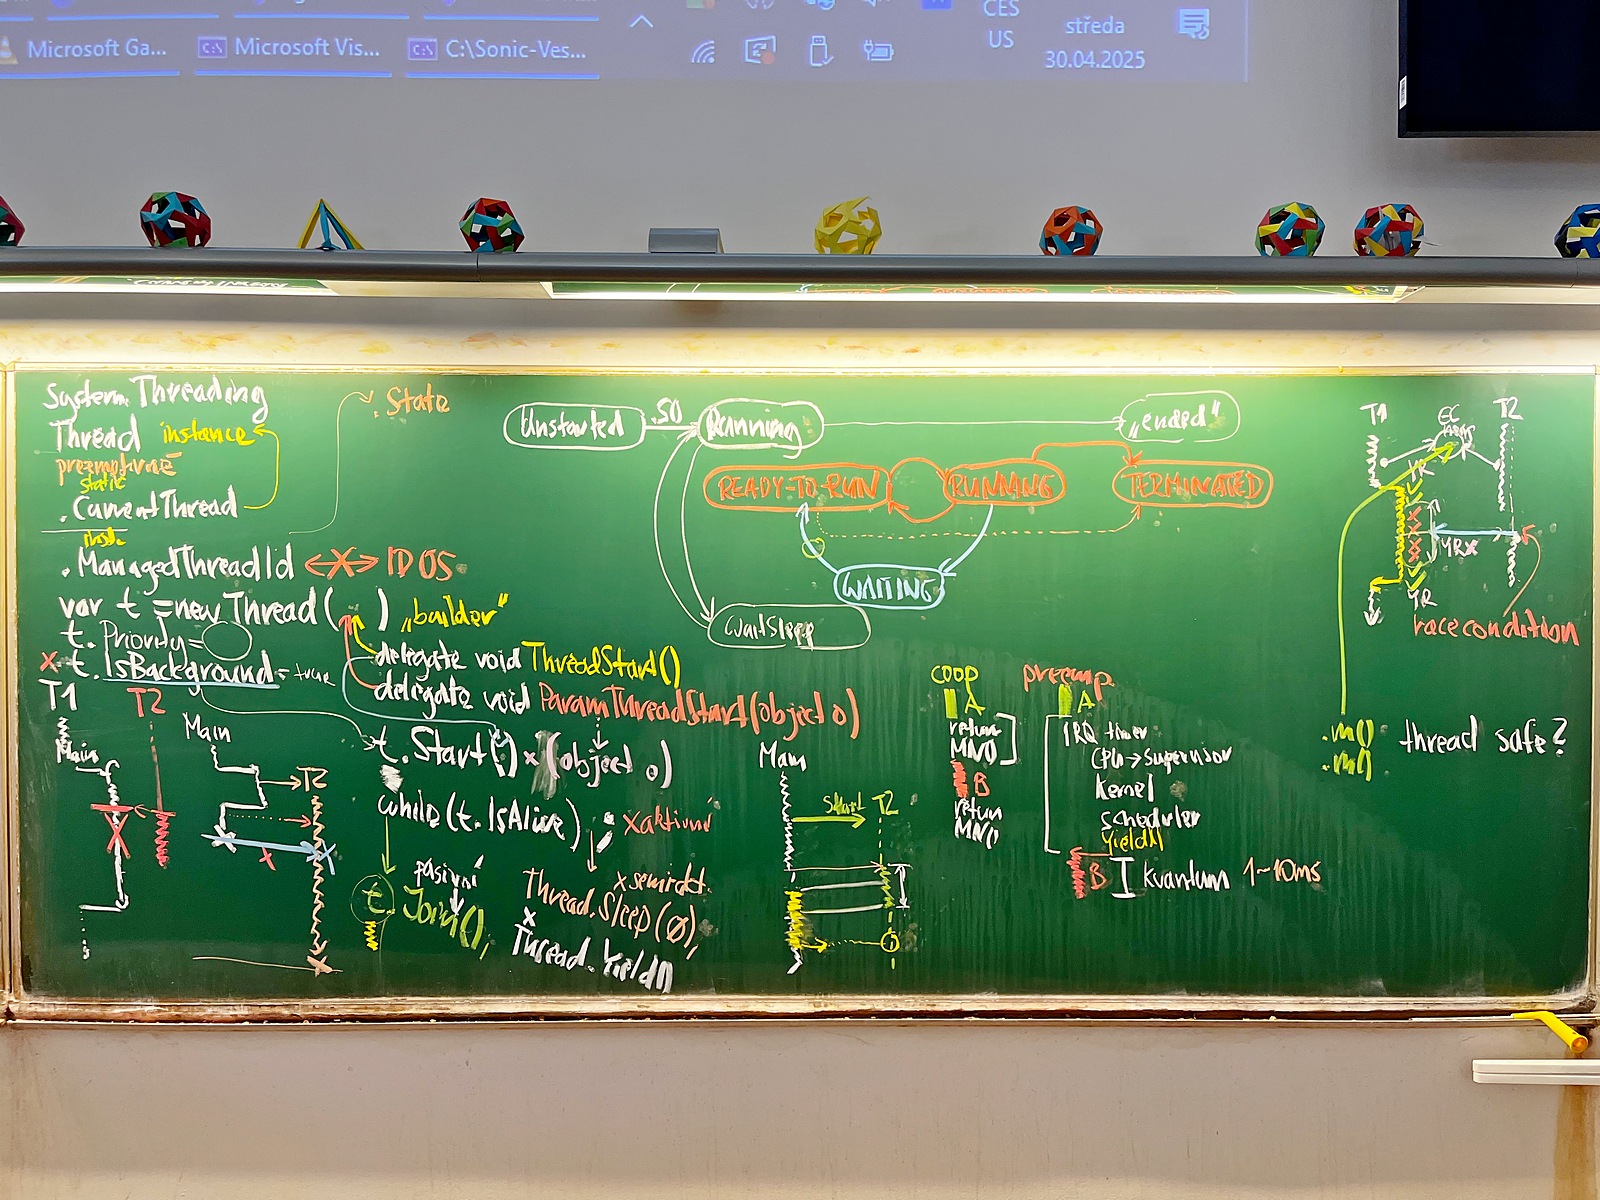 Microsoft Ga...
Microsoft Vis...
C:\Sonic-Ves...
CES
US
středa
30.04.2025
System.Threading
Thread instance
preemptivně
static
.CurrentThread
.State
.ManagedThreadId <-X-> ID OS
var t = new Thread( ) „builder"
t. Priority =
x t. IsBackground = true
delegate void ThreadStart()
delegate void ParamThreadStart(object o)
t. Start() x (object o)
while(t. IsAlive) ;
x aktivní
pasivní
t. Join();
x semiakt.
Thread.Sleep(0);
x
Thread.Yield()
T1
T2
Main
Main
T2
Unstarted
.S()
Running
„ended"
READY-TO-RUN
RUNNING
TERMINATED
WAITING
WaitSleep
Main
Start T2
coop
A
return
MN()
B
return
MN()
preemp.
A
IRQ timer
CPU -> supervisor
Kernel
scheduler
Yield()
B
kvantum 1~10ms
T1
T2
race condition
.m()
.m()
thread safe?